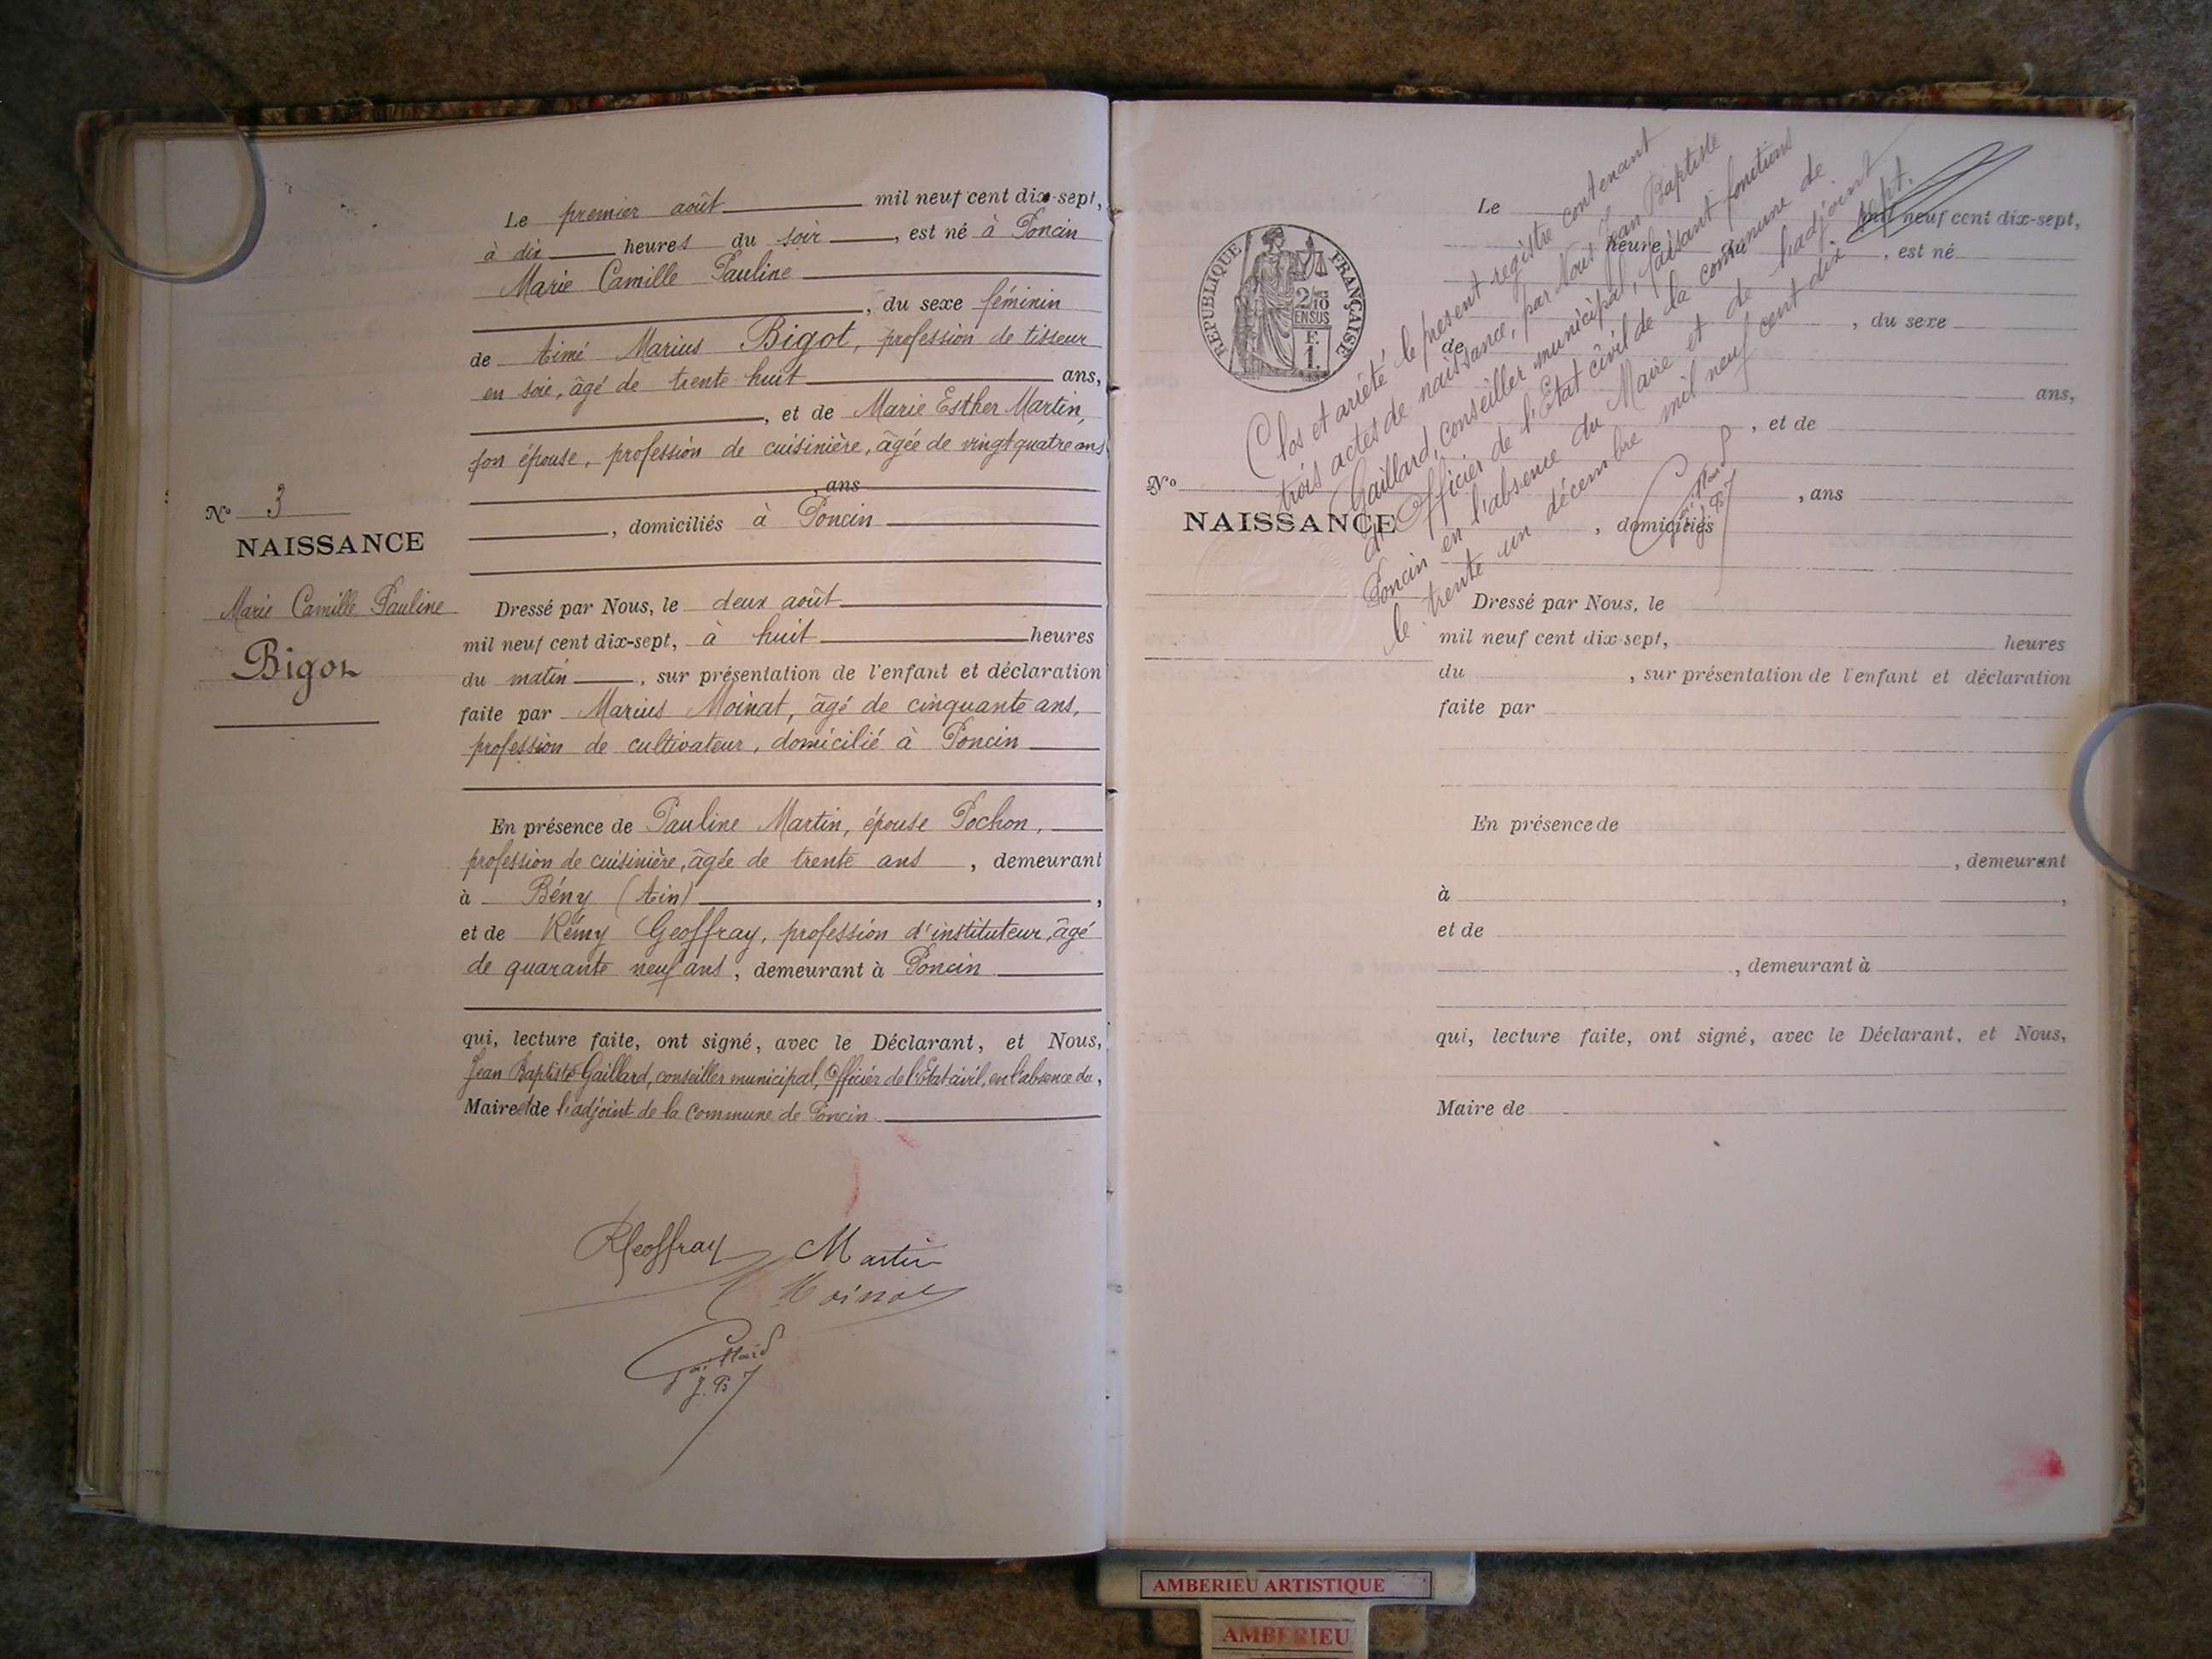 Le premier août mil neuf cent dix-sept,
à dix heures du soir, est né à Poncin
Marie Camille Pauline
, du sexe féminin
de Aimé Marius Bigot, profession de tisseur
en soie, âgé de trente huit ans,
, et de Marie Esther Martin,
son épouse, profession de cuisinière, âgée de vingt quatre ans
, ans
, domiciliés à Poncin
No 3
NAISSANCE
Marie Camille Pauline
Bigot
Dressé par Nous, le deux août
mil neuf cent dix-sept, à huit heures
du matin, sur présentation de l'enfant et déclaration
faite par Marius Moinat, âgé de cinquante ans,
profession de cultivateur, domicilié à Poncin
En présence de Pauline Martin, épouse Pochon,
profession de cuisinière, âgée de trente ans, demeurant
à Bény (Ain),
et de Rémy Geoffray, profession d'instituteur, âgé
de quarante neuf ans, demeurant à Poncin
qui, lecture faite, ont signé, avec le Déclarant, et Nous,
Jean Baptiste Gaillard, conseiller municipal, Officier de l'Etat civil, en l'absence du,
Maire et de l'adjoint de la commune de Poncin
RGeoffray Martin
Moinat
Gaillard
J. B
REPUBLIQUE FRANÇAISE
2/10
EN SUS
F.
1.
Clos et arrêté le présent registre contenant
trois actes de naissance, par Nous Jean Baptiste
Gaillard, conseiller municipal, faisant fonctions
d'Officier de l'Etat civil de la commune de
Poncin en l'absence du Maire et de l'adjoint
le trente un décembre mil neuf cent dix sept.
Gaillard
J. B
Le mil neuf cent dix-sept,
heure du , est né
, du sexe
de
ans,
, et de
No
, ans
NAISSANCE
, domiciliés
Dressé par Nous, le
mil neuf cent dix-sept, heures
du , sur présentation de l'enfant et déclaration
faite par
En présence de
, demeurant
à ,
et de
, demeurant à
qui, lecture faite, ont signé, avec le Déclarant, et Nous,
Maire de
AMBERIEU ARTISTIQUE
AMBERIEU